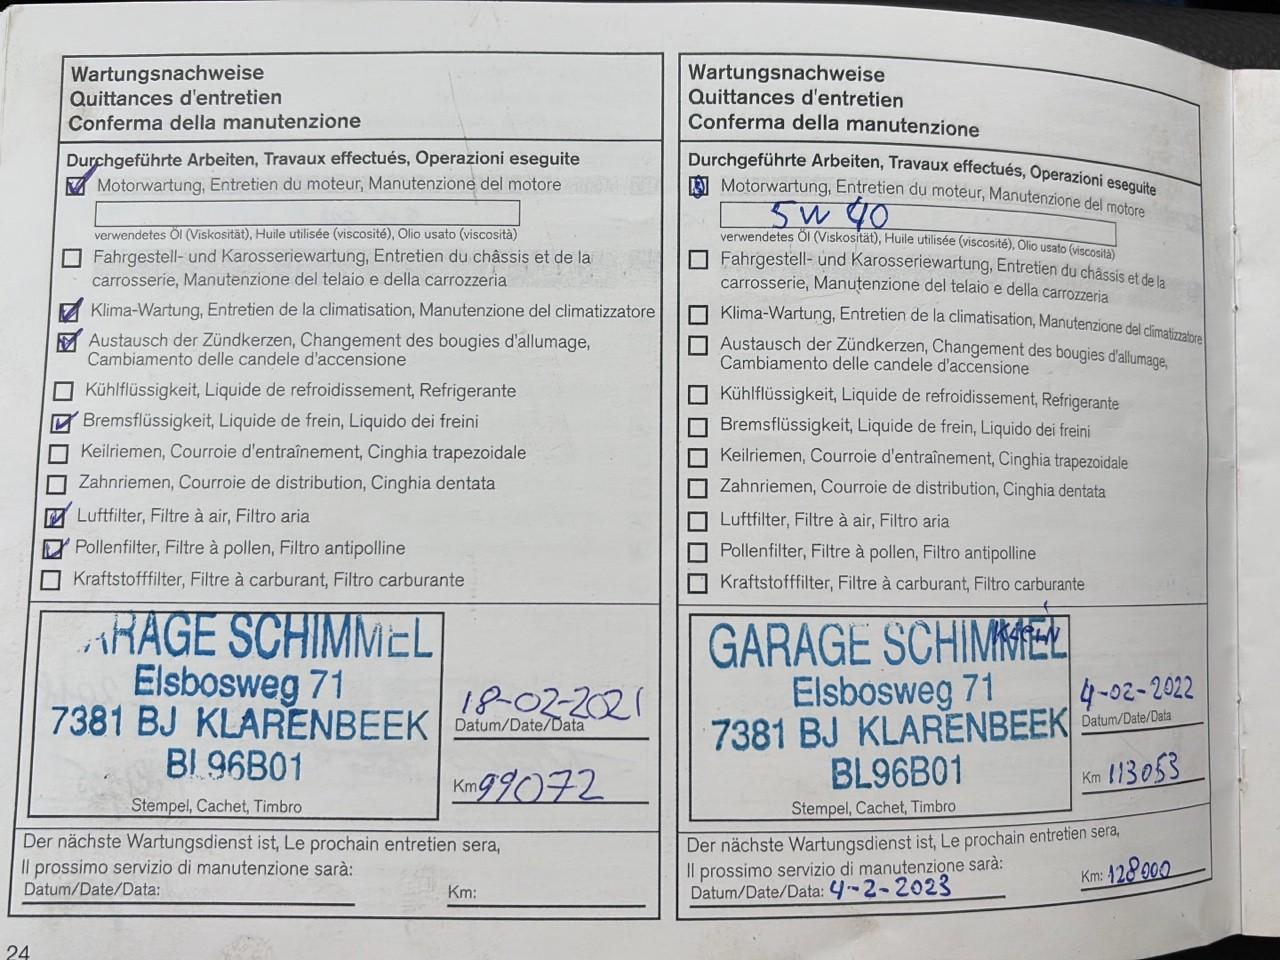 Wartungsnachweise
Quittances d'entretien
Conferma della manutenzione
Durchgeführte Arbeiten, Travaux effectués, Operazioni eseguite
Motorwartung, Entretien du moteur, Manutenzione del motore
verwendetes Öl (Viskosität), Huile utilisée (viscosité), Olio usato (viscosità)
Fahrgestell- und Karosseriewartung, Entretien du châssis et de la
carrosserie, Manutenzione del telaio e della carrozzeria
Klima-Wartung, Entretien de la climatisation, Manutenzione del climatizzatore
Austausch der Zündkerzen, Changement des bougies d'allumage,
Cambiamento delle candele d'accensione
Kühlflüssigkeit, Liquide de refroidissement, Refrigerante
Bremsflüssigkeit, Liquide de frein, Liquido dei freini
Keilriemen, Courroie d'entraînement, Cinghia trapezoidale
Zahnriemen, Courroie de distribution, Cinghia dentata
Luftfilter, Filtre à air, Filtro aria
Pollenfilter, Filtre à pollen, Filtro antipolline
Kraftstofffilter, Filtre à carburant, Filtro carburante
GARAGE SCHIMMEL
Elsbosweg 71
7381 BJ KLARENBEEK
BL96B01
Stempel, Cachet, Timbro
18-02-2021
Datum/Date/Data
Km 99072
Der nächste Wartungsdienst ist, Le prochain entretien sera,
Il prossimo servizio di manutenzione sarà:
Datum/Date/Data:
Km:
24
Wartungsnachweise
Quittances d'entretien
Conferma della manutenzione
Durchgeführte Arbeiten, Travaux effectués, Operazioni eseguite
Motorwartung, Entretien du moteur, Manutenzione del motore
5W40
verwendetes Öl (Viskosität), Huile utilisée (viscosité), Olio usato (viscosità)
Fahrgestell- und Karosseriewartung, Entretien du châssis et de la
carrosserie, Manutenzione del telaio e della carrozzeria
Klima-Wartung, Entretien de la climatisation, Manutenzione del climatizzatore
Austausch der Zündkerzen, Changement des bougies d'allumage,
Cambiamento delle candele d'accensione
Kühlflüssigkeit, Liquide de refroidissement, Refrigerante
Bremsflüssigkeit, Liquide de frein, Liquido dei freini
Keilriemen, Courroie d'entraînement, Cinghia trapezoidale
Zahnriemen, Courroie de distribution, Cinghia dentata
Luftfilter, Filtre à air, Filtro aria
Pollenfilter, Filtre à pollen, Filtro antipolline
Kraftstofffilter, Filtre à carburant, Filtro carburante
Klein
GARAGE SCHIMMEL
Elsbosweg 71
7381 BJ KLARENBEEK
BL96B01
Stempel, Cachet, Timbro
4-02-2022
Datum/Date/Data
Km 113053
Der nächste Wartungsdienst ist, Le prochain entretien sera,
Il prossimo servizio di manutenzione sarà:
Datum/Date/Data: 4-2-2023
Km: 128000